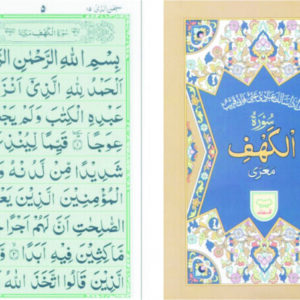 سبحن الذى ١٥
٥
سُوْرَةُ الْكَهْفِ مَكِّيَّةٌ
بِسْمِ اللهِ الرَّحْمٰنِ الرَّ
اَلْحَمْدُ لِلّٰهِ الَّذِيْۤ اَنْزَ
عَبْدِهِ الْكِتٰبَ وَلَمْ يَجْ
عِوَجًا ١ قَيِّمًا لِّيُنْذِ
شَدِيْدًا مِّنْ لَّدُنْهُ وَ
الْمُؤْمِنِيْنَ الَّذِيْنَ يَعْ
الصّٰلِحٰتِ اَنَّ لَهُمْ اَجْرًا حَ
مَّاكِثِيْنَ فِيْهِ اَبَدًا ٣ وَّ
الَّذِيْنَ قَالُوا اتَّخَذَ اللّٰهُ
سُوْرَةُ
الْكَهْفِ
معرى